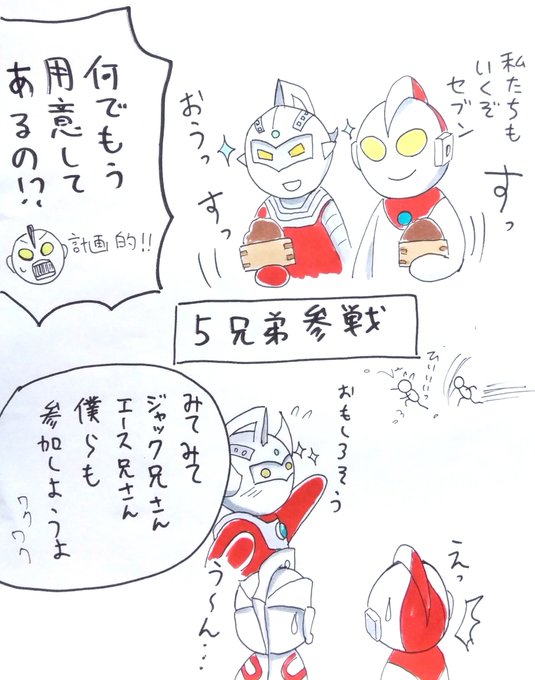 私たちも
いくぞ
セブン
すっ
おうっ
すっ
何でもう
用意して
あるの!?
計画的!!
5兄弟参戦
ひぃぃっ
おもしろそう
みてみて
ジャック兄さん
エース兄さん
僕らも
参加しようよ
ワクワク
えっ
う～ん…